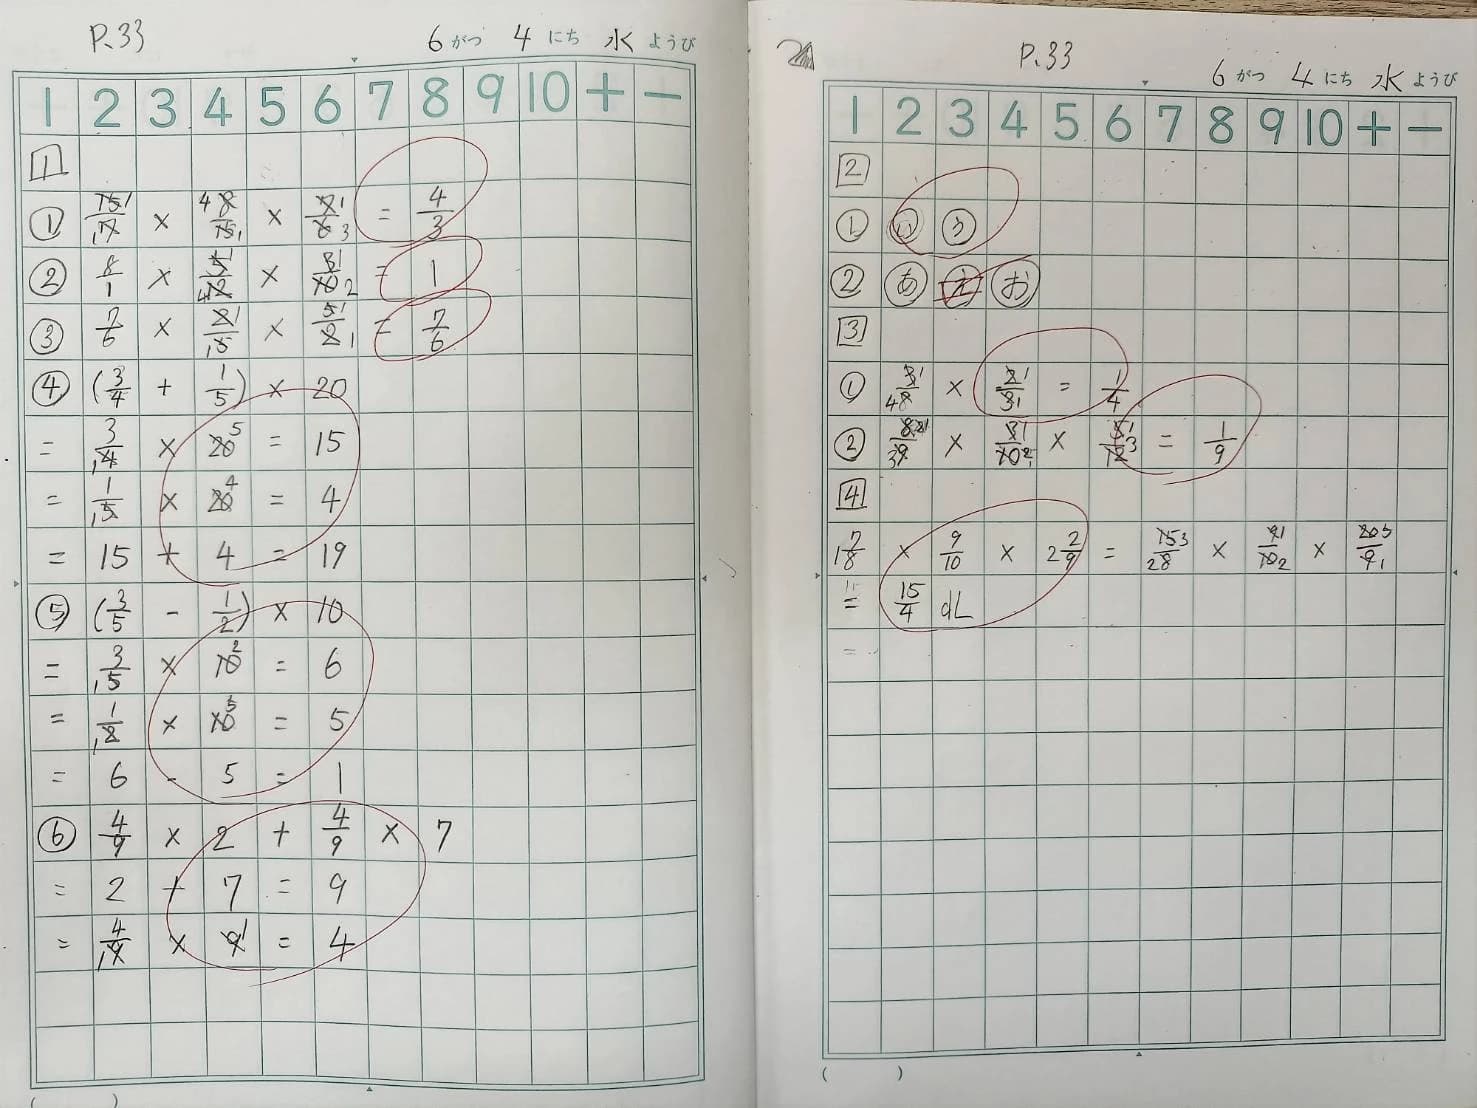 P.33
6がつ 4にち 水ようび
1 2 3 4 5 6 7 8 9 10 + −
1
① 15/17 × 8/15 × / = 4/3
② 8/1 × 5/12 × 3/10 = 1
③ 7/6 × 2/5 × 5/2 = 7/6
④ (3/4 + 1/5) × 20
= 3/4 × 20 = 15
= 1/5 × 20 = 4
= 15 + 4 = 19
⑤ (3/5 - 1/2) × 10
= 3/5 × 10 = 6
= 1/2 × 10 = 5
= 6 - 5 = 1
⑥ 4/9 × 2 + 4/9 × 7
= 2 + 7 = 9
= 4/9 × 9 = 4
P.33
6がつ 4にち 水ようび
1 2 3 4 5 6 7 8 9 10 + −
2
① い う
② あ え お
3
① 3/8 × 2/3 = 1/4
② 8/9 × 3/10 × 5/12 = 1/9
4
1 7/8 × 9/10 × 2 2/9 = 15/8 × 9/10 × 20/9
= 15/4 dL
=